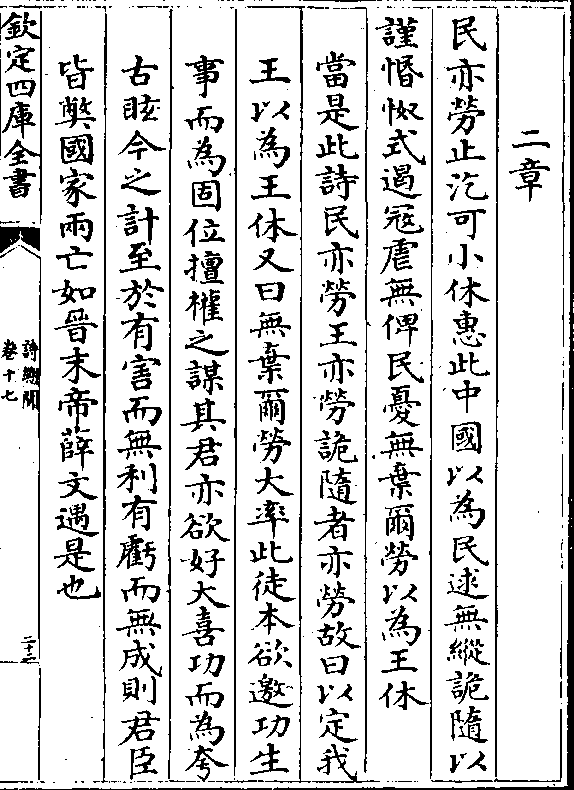 二章
民亦勞止汔可小休惠此中國以為民逑無縱詭隨以
謹惛怓式遏寇虐無俾民憂無棄爾勞以為王休
當是此詩民亦勞王亦勞詭隨者亦勞故曰以定我
王以為王休又曰無棄爾勞大率此徒本欲邀功生
事而為固位擅權之謀其君亦欲好大喜功而為夸
古眩今之計至於有害而無利有虧而無成則君臣
皆獘國家兩亡如晉末帝薛文遇是也
欽定四庫全書
詩纘聞
卷十七
二十二